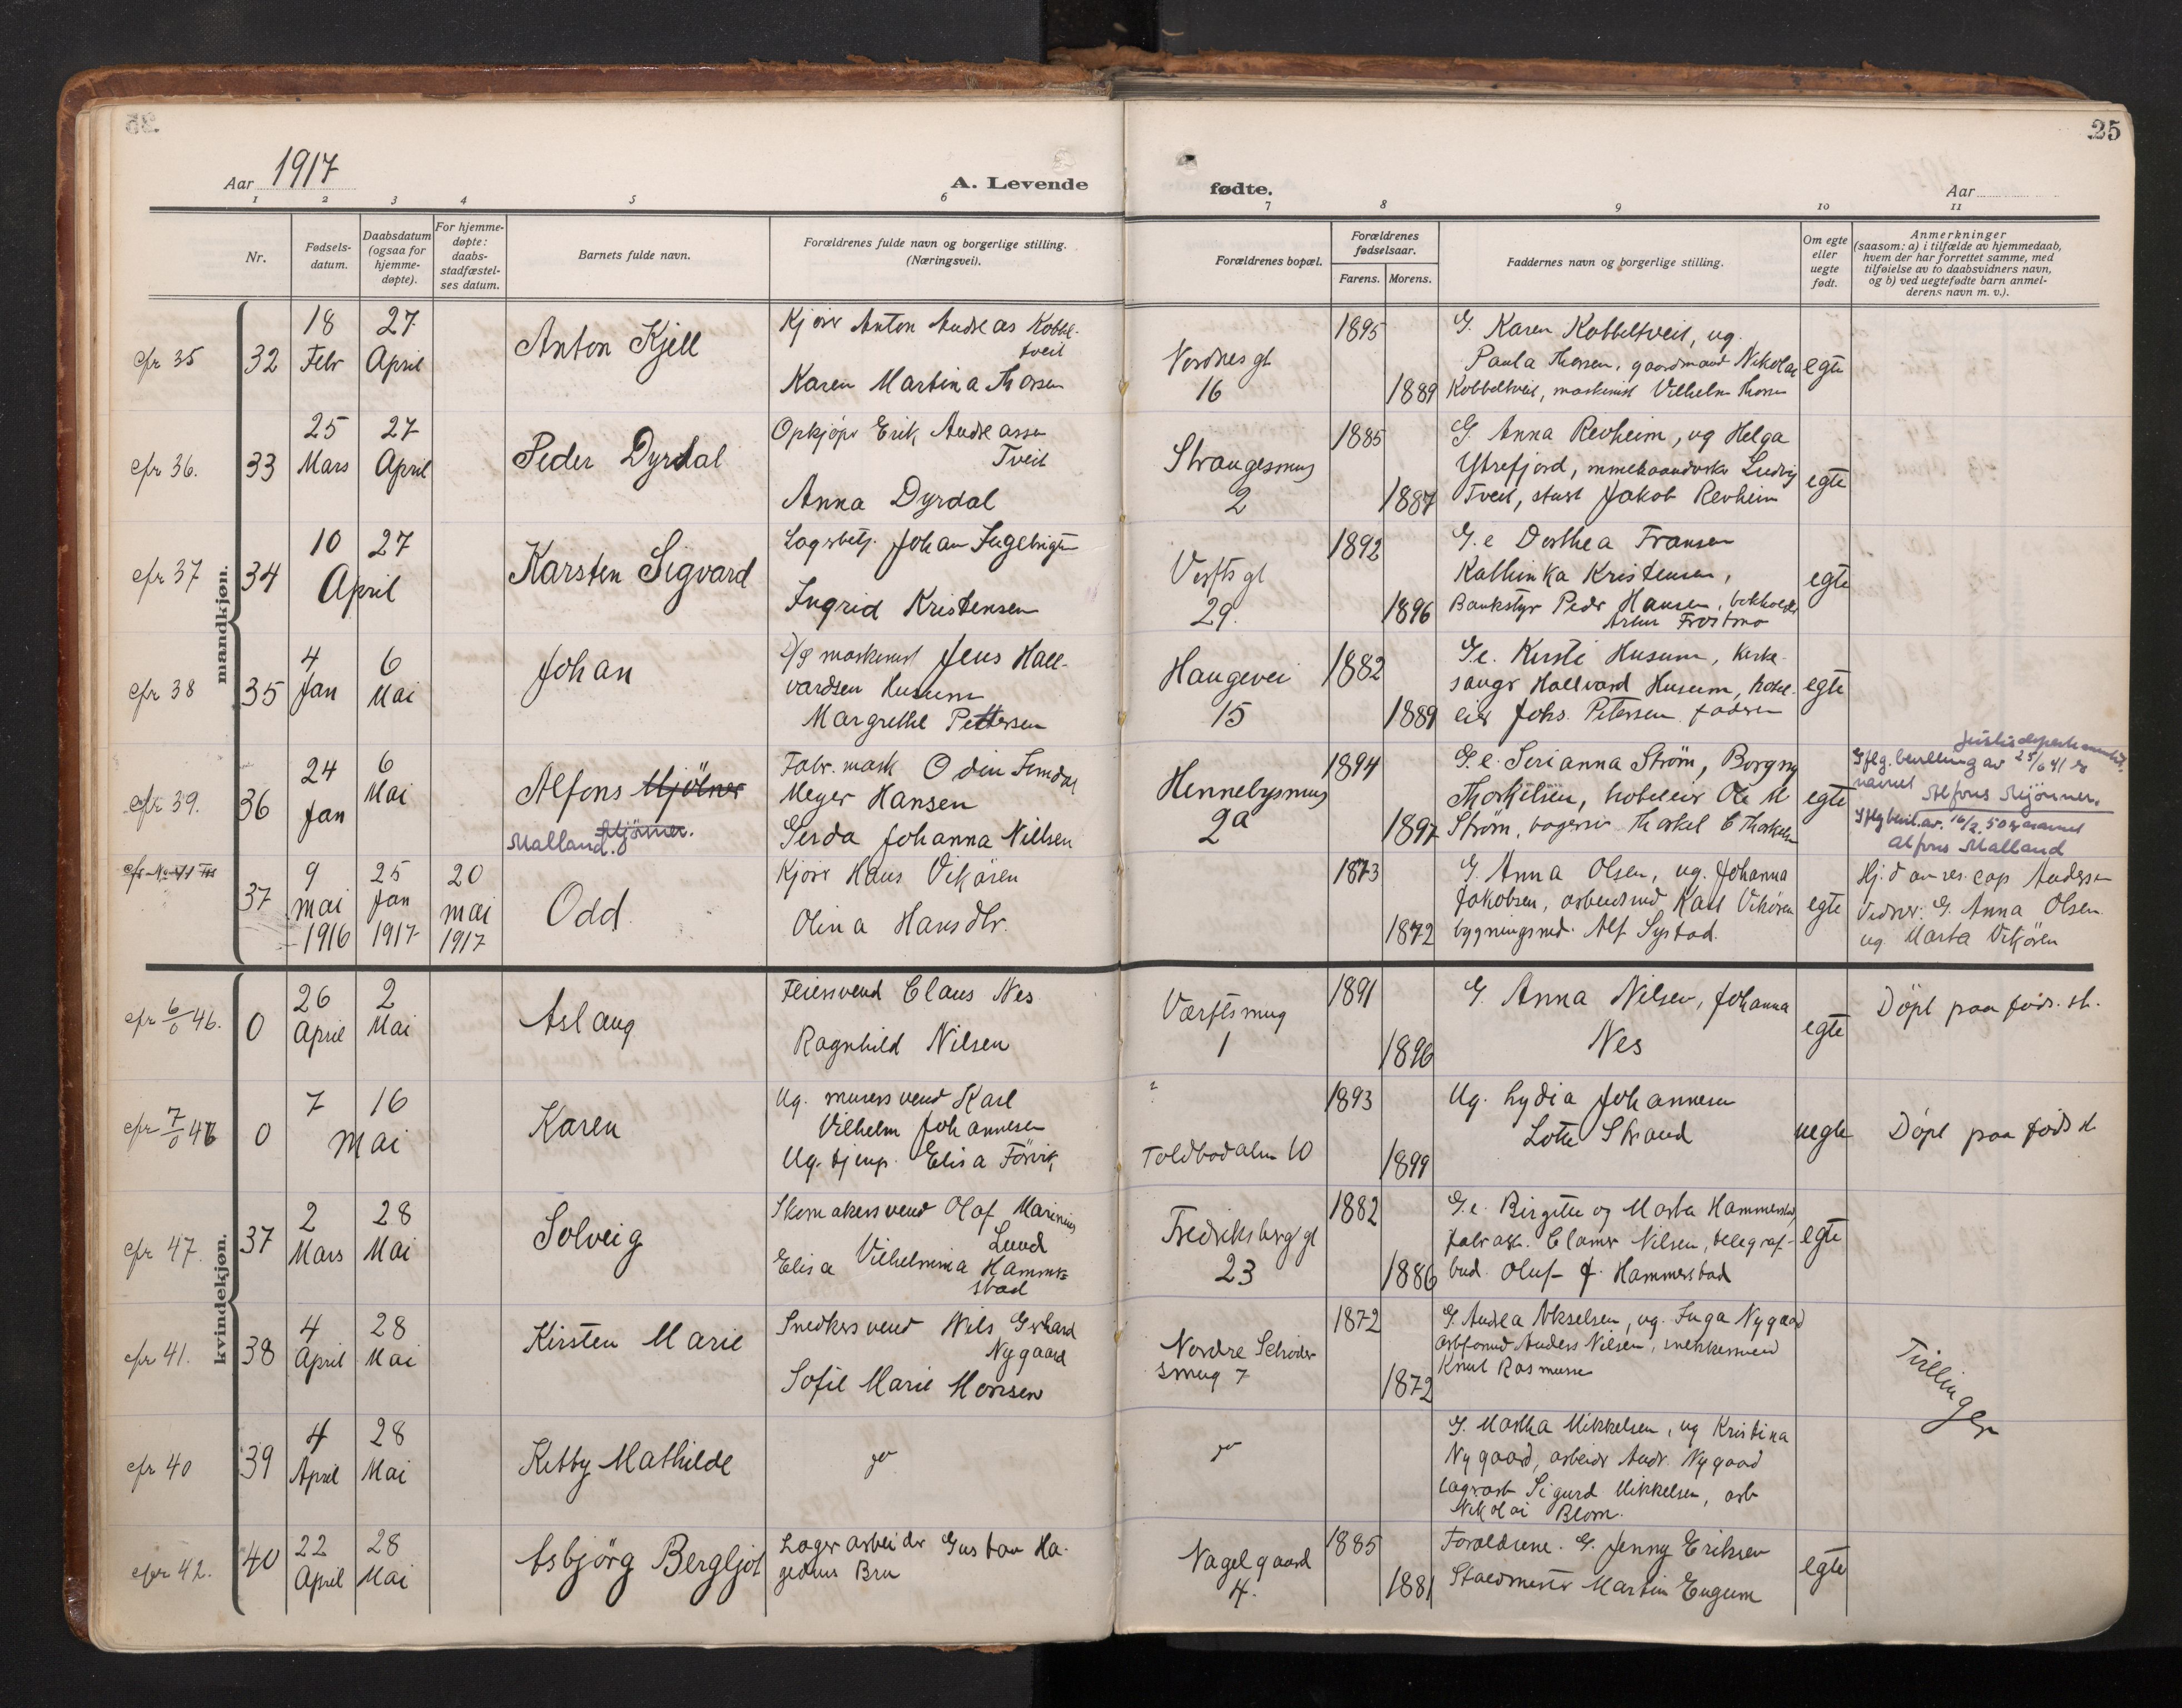 25
Aar 1917
A. Levende
fødte.
Aar
1 2 3 4 5 6 7 8 9 10 11
Nr.
Fødsels-
datum.
Daabsdatum
(ogsaa for
hjemme-
døpte).
For hjemme-
døpte:
daabs-
stadfæstel-
ses datum.
Barnets fulde navn.
Forældrenes fulde navn og borgerlige stilling.
(Næringsvei).
Forældrenes bopæl.
Forældrenes
fødselsaar.
Farens. Morens.
Faddernes navn og borgerlige stilling.
Om egte
eller
uegte
født.
Anmerkninger
(saasom: a) i tilfælde av hjemmedaab,
hvem der har forrettet samme, med
tilføielse av to daabsvidners navn,
og b) ved uegtefødte barn anmel-
derens navn m. v.).
mandkjøn.
cfr 35
32
18
Febr
27
April
Anton Kjell
Kjører Anton Andreas Kobbel-
tveit
Karen Martina Thorsen
Nordnesgt
16
1895
1889
G. Karen Kobbeltveit, ug.
Paula Thorsen, gaardmand Nikolai
Kobbeltveit, maskinist Vilhelm Thorsen
egte
cfr 36.
33
25
Mars
27
April
Peder Dyrdal
Opkjøper Erik Andreassen
Tveit
Anna Dyrdal
Strangesmug
2
1885
1887
G. Anna Revheim, ug Helga
Ytrefjord, Ludvig
Tveit, Jakob Revheim
egte
cfr 37
34
10 27
April
Karsten Sigvard
Lagerbetj. Johan Ingebrigtsen
Ingrid Kristensen
Verftsgt
29.
1892
1896
G.e Dorthea Fransen
Kathinka Kristensen,
Bankstyr Peder Hansen, bokholder
Artur Frostmo
egte
cfr 38
35
4
Jan
6
Mai
Johan
D/S maskinist Jens Hall-
vardsen Husum
Margrethe Pettersen
Haugevei
15
1882
1889
G.e. Kirsti Husum, kirke-
sanger Hallvard Husum, hotel-
eier Johs. Petersen faderen
egte
cfr 39.
36
24
Jan
6
Mai
Alfons Mjölner
Mjönner.
Malland.
Fabr. mask Odin
Meyer Hansen
Gerda Johanna Nielsen
Hennebysmug
2a
1894
1897
G.e. Serianna Strøm, Borgny
Thorkelsen, hoteleier Ole M
Strøm, Thorkel C Thorkelsen
egte
Justisdepartementet.
Iflg. bevilling av 25/6 41 er
navnet
Alfons Mjönner.
Iflg bevil. av. 16/2. 50 er navnet
Alfons Malland
37
9
mai
1916
25
Jan
1917
20
mai
1917
Odd
Kjører Hans Vikören
Olina Hansdtr.
1873
1872
G. Anna Olsen, ug. Johanna
Jakobsen, arbeidsmd Karl Vikören
bygningsmd. Alf Systad.
egte
Hj. d av res. cap Andersen
Vidner: G. Anna Olsen
ug. Marta Vikören
kvindekjøn.
cfr 6/0 46.
0
26
April
2
Mai
Aslaug
Feiersvend Claus Nes
Ragnhild Nilsen
Værftsmug
1
1891
1896
G. Anna Nilsen, Johanna
Nes
egte
Döpt paa föds. st.
cfr 7/0 46
0
7 16
Mai
Karen
Ug. murersvend Karl
Vilhelm Johannesen
Ug. tjenp. Elisa Förvik
Toldbodalm 10
1893
1899
Ug. Lydia Johannesen
Lotte Strand
uegte
Döpt paa föds st
cfr 47.
37
2
Mars
28
Mai
Solveig
Skomakersvend Olaf Marinius
Lund
Elisa Vilhelmina Hammer-
stad
Fredriksberg gt
23
1882
1886
G.e. Birgitte og Marta Hammerstad,
fabr arb. Clamer Nilsen, telegraf-
bud Oluf J. Hammerstad
egte
cfr 41.
38
4
April
28
Mai
Kirsten Marie
Snedkersvend Nils Gerhard
Nygaard
Sofie Marie Monsen
Nordre Schrøder
smug 7
1872
1872
G. Andrea Akselsen, ug. Inga Nygaard
arbformd Anders Nilsen, snekkersvend
Knut Rasmussen
Tvillinger
cfr 40
39
4
April
28
Mai
Kitty Mathilde
G. Martha Mikkelsen, ug Kristina
Nygaard, arbeider Andr. Nygaard
lagerarb Sigurd Mikkelsen, arb
Nikolai Blom.
cfr 42.
40
22
April
28
Mai
Asbjörg Bergljot
Lagerarbeider Gustav Ha-
gedius Bru
Nagelgaard
4.
1885
1881
Forældrene. G. Jenny Eriksen
Staldmester Martin Engum
egte